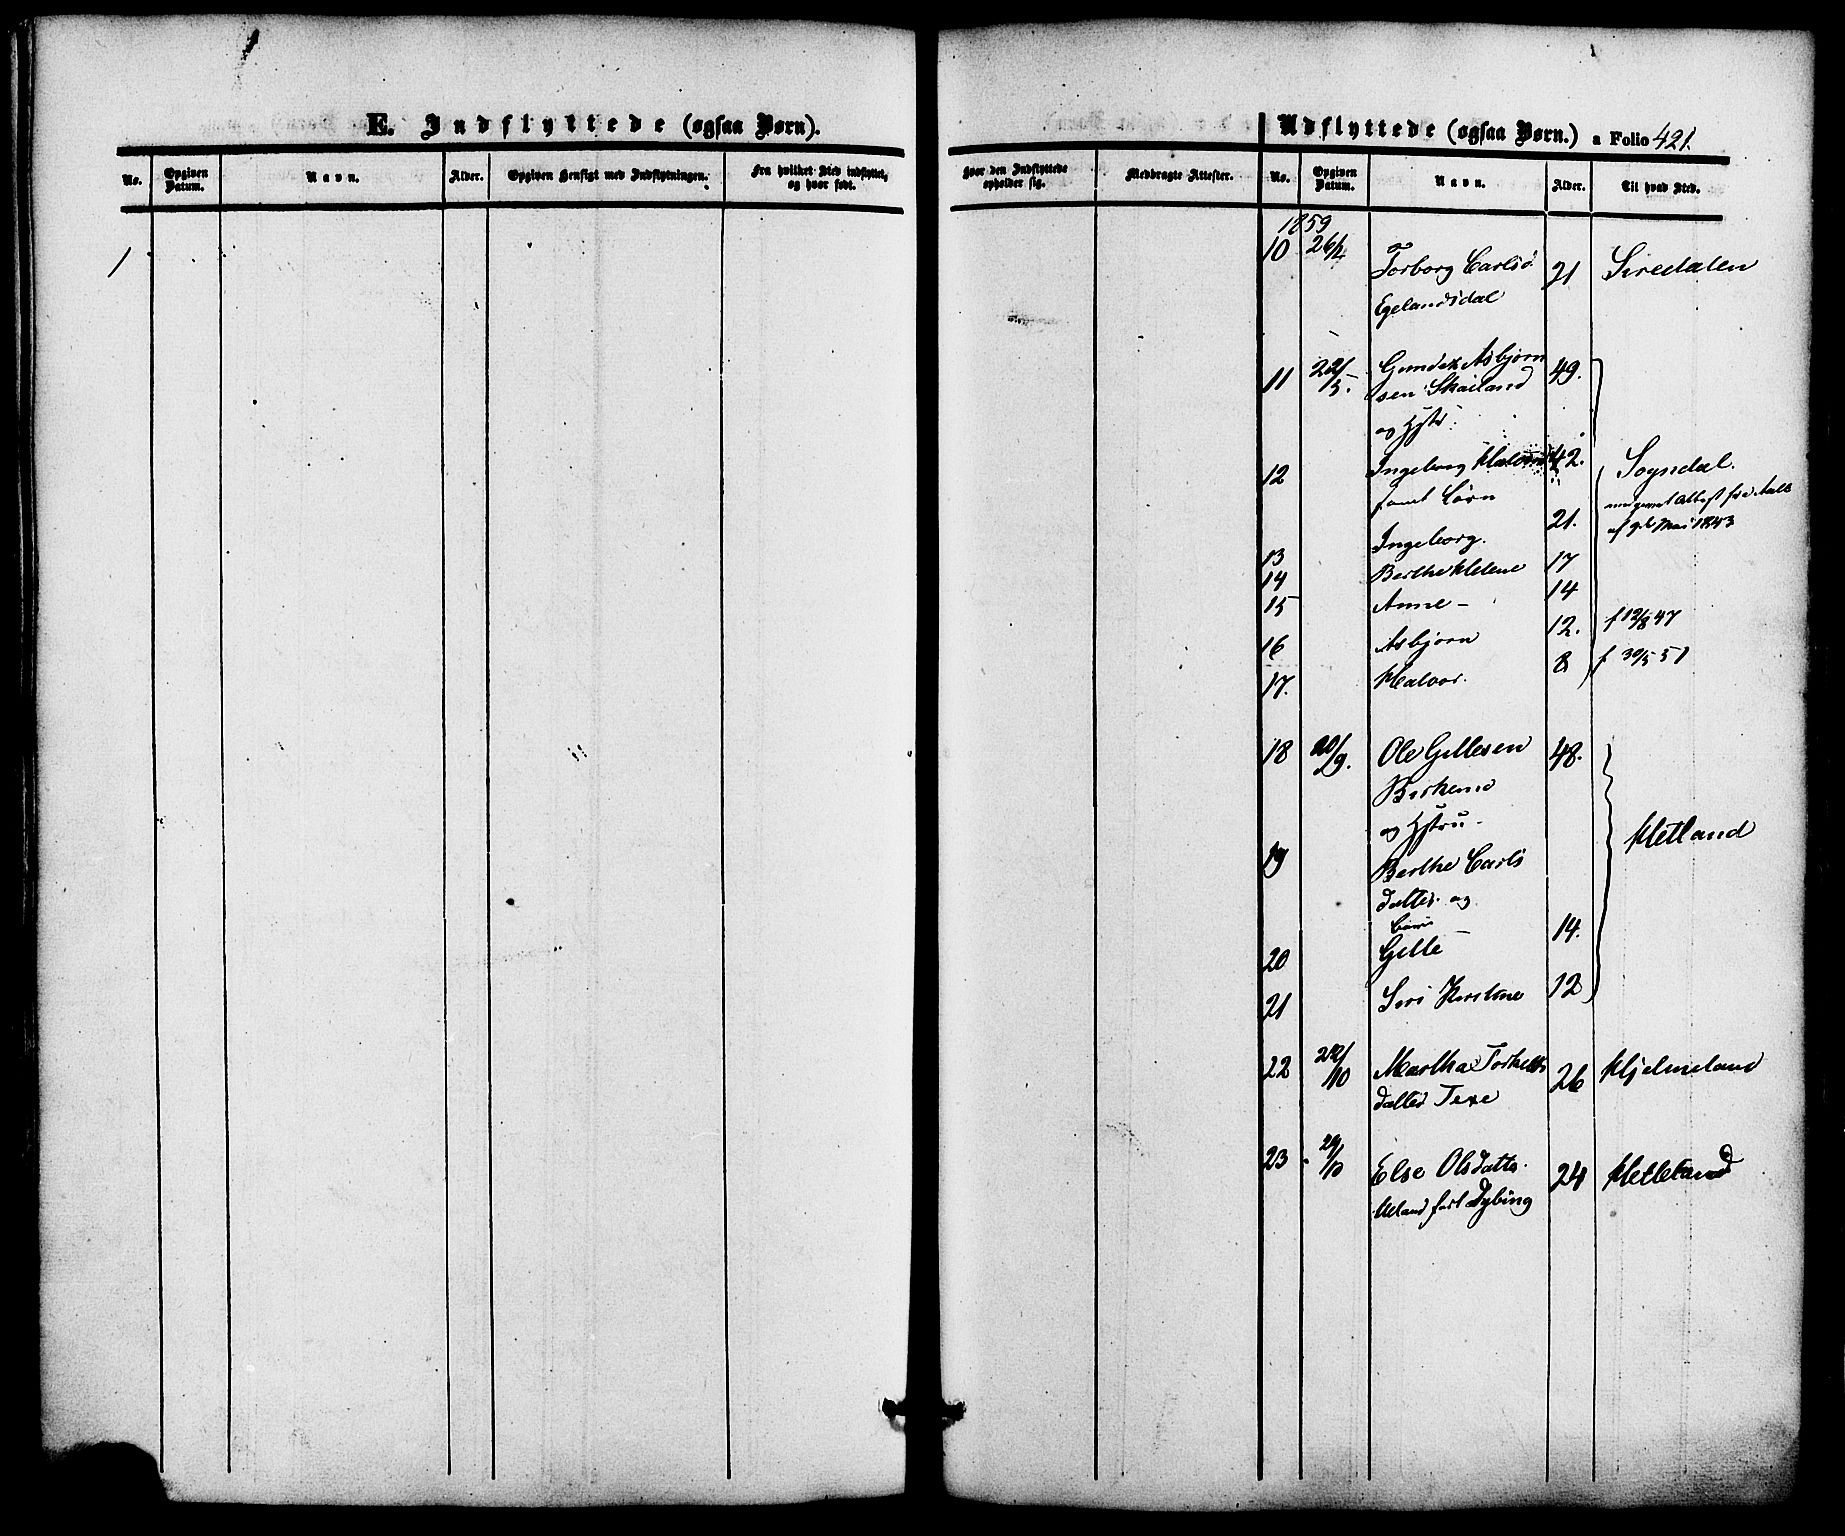 E. Indflyttede (ogsaa Børn).
No.
Opgiven Datum.
Navn.
Alder.
Opgiven Hensigt med Indflytningen.
Fra hvilket Sted indflyttet, og hvor født.
Udflyttede (ogsaa Børn.) a Folio 421.
Hvor den Indflyttede opholder sig.
Medbragte Attester.
No.
Opgiven Datum.
Navn.
Alder.
Til hvad Sted.
1859
10 26/4 Torborg Carlsd 21 Siredalen
Egelandsdal
11 22/5. Asbjørn 49.
sen Skailand
og Hstr:
12 Ingeborg 42. Sogndal.
samt Børn
13 Ingeborg. 21.
af Mai 1843
14 Berthe Helene 17
15 Anne - 14
16 Asbjørn 12. f 12/8 47
17. Halvor. 8 f 30/5 51
18 20/9. Ole Gillesen 48.
og Hstru - Hetland
19 Berthe Carls
datter og
Børn
20 Gille - 14.
21 Siri Kirstine 12
22 /10 Martha Torkels 26 Hjelmeland
datter
23 29/10 Else Olsdatt. 24 Hetleland
Ueland ført Dybing